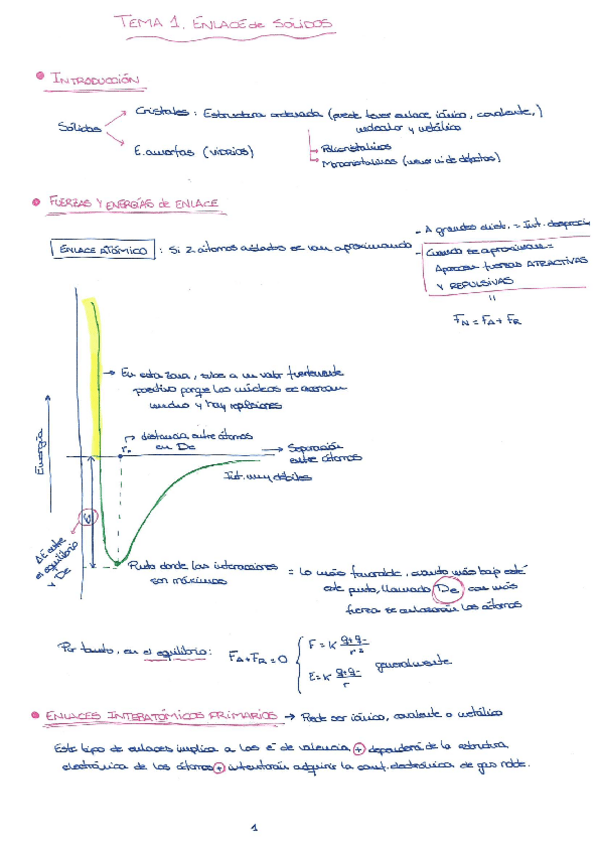 TEMA 1. ENLACE de SÓLIDOS
INTRODUCCIÓN
Sólidos
Cristales: Estructura ordenada (puede tener enlace iónico, covalente,)
molecular y metálico
Policristalinos
E. amorfas (VIDRIOS)
Monocristalinos (menor nº de defectos)
FUERZAS Y ENERGÍAS de ENLACE
- A grandes dist. = Int. despreci
ENLACE ATÓMICO : Si 2 átomos aislados se van aproximando
- Cuando se aproximan =
Aparecen fuerzas ATRACTIVAS
Y REPULSIVAS
=
FN = FA + FR
En esta zona, sube a un valor fuertemente
positivo porque los núcleos se acercan
mucho y hay repulsiones
distancia entre átomos
en De
r₀
Separación
entre átomos
Int. muy débiles
Energía
ΔE entre
el equilibrio
y De
Punto donde las interacciones
son máximas
= lo más favorable, cuando más bajo esté
este punto, llamado De con más
fuerza se enlazarán los átomos
Por tanto, en el equilibrio:
FA + FR = 0
F = K q+q- / r²
E = K q+q- / r
generalmente
ENLACES INTERATÓMICOS PRIMARIOS → Puede ser iónico, covalente o metálico
Este tipo de enlaces implica a los e⁻ de valencia + dependerá de la estructura
electrónica de los átomos + intentarán adquirir la conf. electrónica de gas noble.
1